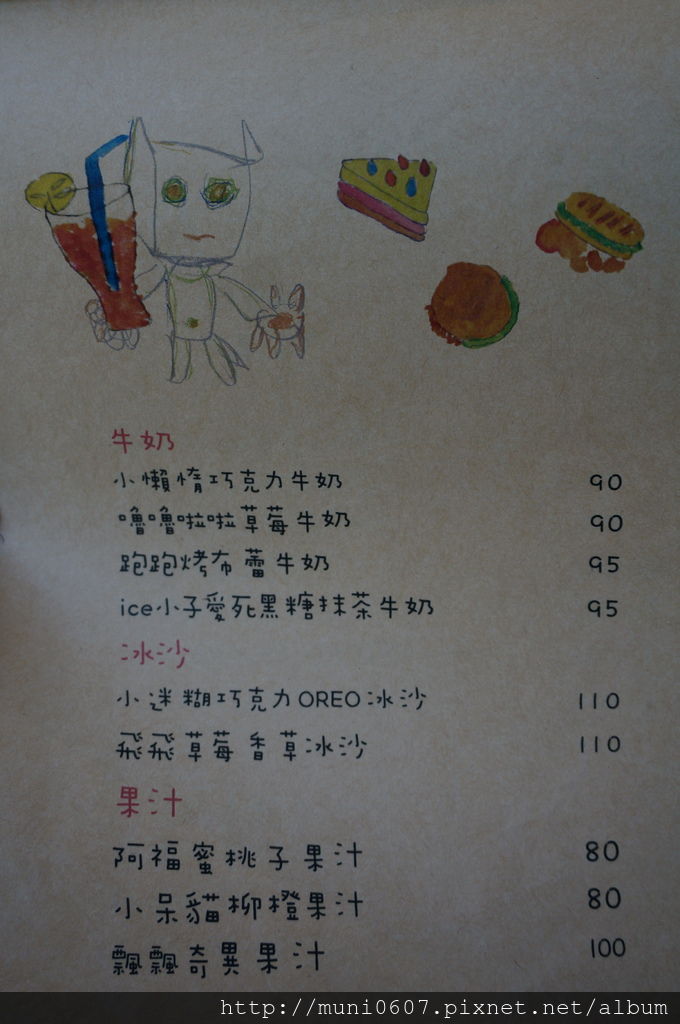 牛奶
小懶惰巧克力牛奶 90
嚕嚕啦啦草莓牛奶 90
跑跑烤布蕾牛奶 95
ice小子愛死黑糖抹茶牛奶 95
冰沙
小迷糊巧克力OREO冰沙 110
飛飛草莓香草冰沙 110
果汁
阿福蜜桃子果汁 80
小呆貓柳橙果汁 80
飄飄奇異果汁 100
http://muni0607.pixnet.net/album